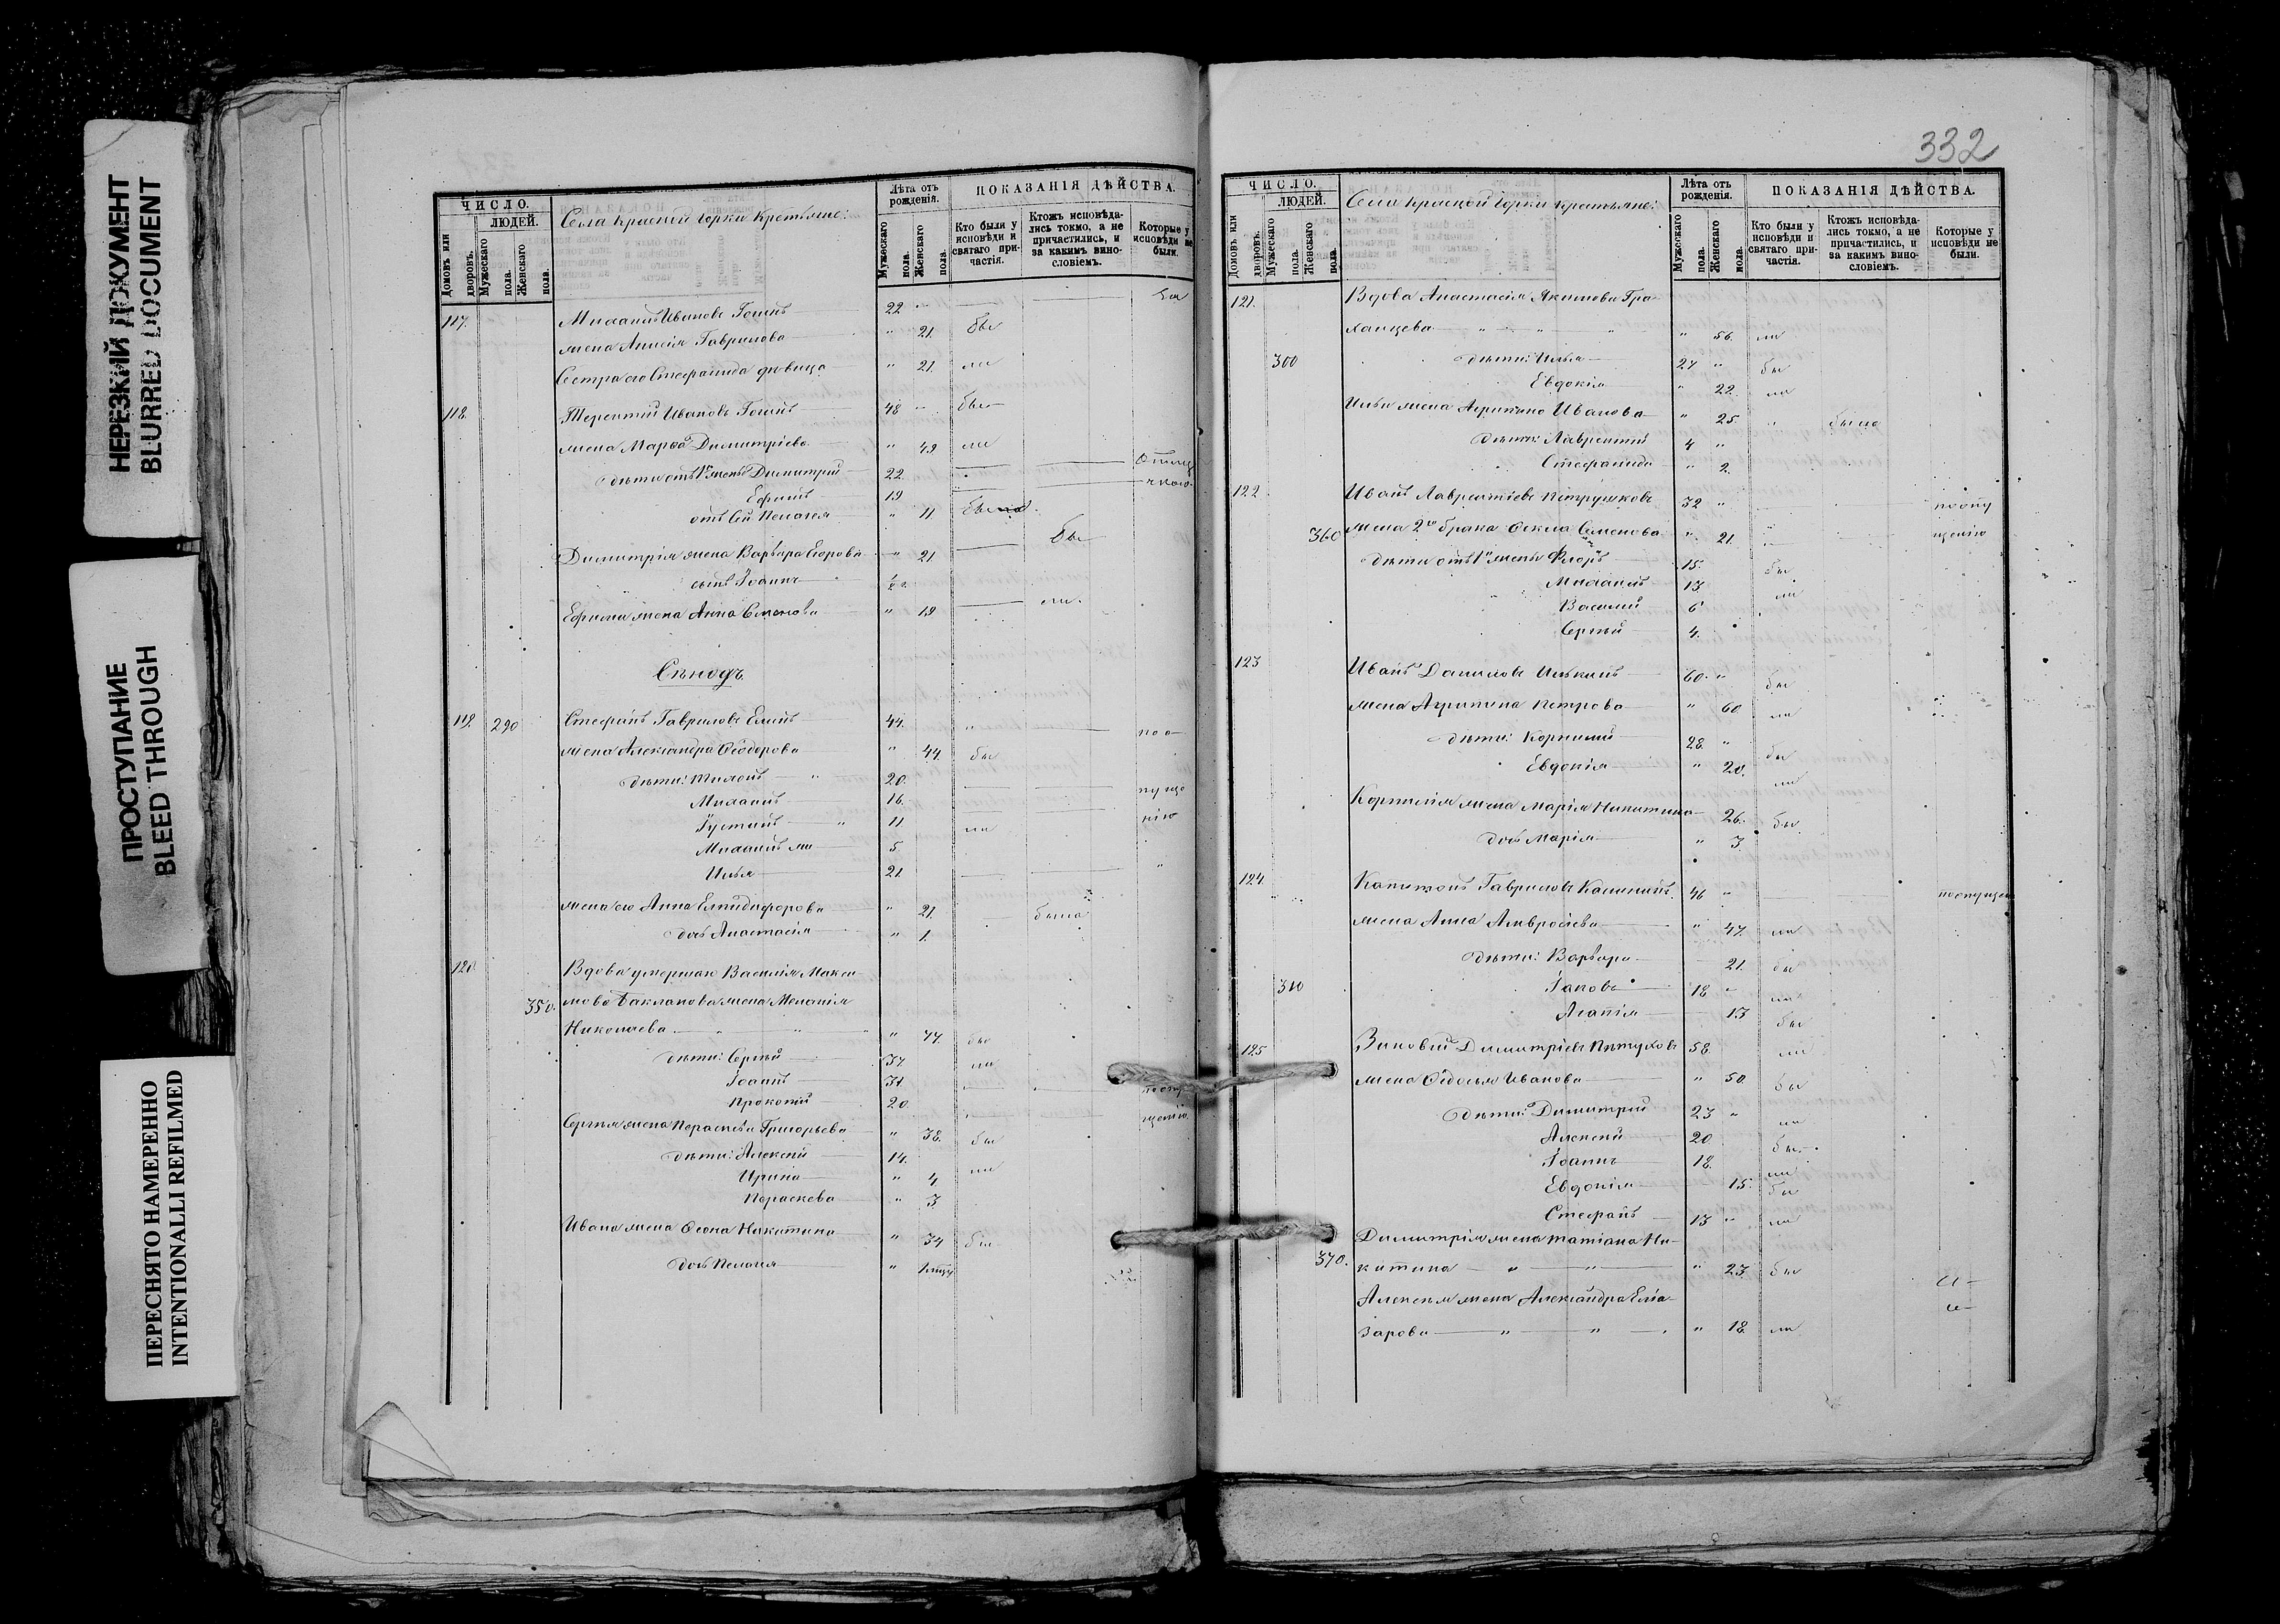 НЕРЕЗКИЙ ДОКУМЕНТ
BLURRED DOCUMENT
ПРОСТУПАНИЕ
BLEED THROUGH
ПЕРЕСНЯТО НАМЕРЕННО
INTENTIONALLI REFILMED
ЧИСЛО.
ЛЮДЕЙ.
Домовъ или дворовъ.
Мужескаго пола.
Женскаго пола.
Села Красной Горки Крестьяне:
Лѣта отъ рожденія.
Мужескаго пола.
Женскаго пола.
ПОКАЗАНІЯ ДѢЙСТВА.
Кто были у исповѣди и святаго причастія.
Ктожъ исповѣдались токмо, а не причастились, и за какимъ винословіемъ.
Которые у исповѣди не были.
117. Михаилъ Ивановъ 22 "
жена Анисія Гаврилова " 21. бы
Сестра его Стефанида девица " 21. ли
118. Терентій Ивановъ 48 " бы
жена Марѳа Димитріева " 49 ли
дѣти отъ 1й жены Димитрій 22
Ефимъ 19
отъ сей Пелагея " 11.
Димитрія жена Варвара Егорова " 21. бы
сынъ Іоаннъ
Ефима жена Анна Семенова " 19 ли
119. 290 Стефанъ Гавриловъ 44.
жена Александра Ѳеодорова " 44. бы
дѣти: 20.
Михаилъ 16.
Іустинъ 11 ли
Михаилъ 5
Илья 21
жена его Анна Елпидифорова " 21. была
дочь Анастасія " 1.
120. Вдова умершаго Василія Макси-
350. мова Бакланова жена Меланія
Николаева " 77. бы
дѣти: Сергѣй 37 ли
Іоаннъ 31
Прокопій 20
Сергѣя жена Параскева Григорьева " 38. бы
дѣти: Алексѣй 14. ли
Ирина " 4.
Параскева " 3
Ивана жена Никитина " 34 бы
дочь Пелагея "
332
ЧИСЛО.
ЛЮДЕЙ.
Домовъ или дворовъ.
Мужескаго пола.
Женскаго пола.
Села Красной Горки крестьяне:
Лѣта отъ рожденія.
Мужескаго пола.
Женскаго пола.
ПОКАЗАНІЯ ДѢЙСТВА.
Кто были у исповѣди и святаго причастія.
Ктожъ исповѣдались токмо, а не причастились, и за какимъ винословіемъ.
Которые у исповѣди не были.
121. Вдова Анастасія Якимова
" 56. ли
300 дѣти: Илья 27 " бы
Евдокія " 22. ли
Ильи жена Агрипина Иванова " 25. " была
дѣти: Лаврентій 4 "
Стефанида " 2.
122. Иванъ Лаврентіевъ Петрушковъ 32 " поопу
360 жена 2го брака Ѳекла Семенова " 21. щенію
дѣти отъ 1й жены Флоръ 15. бы
Михаилъ 13. ли
Василій 6
Сергѣй 4.
123 Иванъ Даниловъ Илькинъ 60. " бы
жена Агрипина Петрова " 60 ли
дѣти: Корнилій 28. " бы
Евдокія " 20. ли
Корнилія жена Марія Никитина 26. бы
дочь Марія " 3
124. Капитонъ Гавриловъ Калининъ 46 "
жена Анна Амвросіева " 47. ли
дѣти: Варвара 21. бы
310 Іаковъ 18 " ли
Агапія 13 бы
125 Зиновій Димитріевъ Пѣтуховъ 58. ли
жена Ѳедосья Иванова " 50. бы
дѣти: Димитрій 23 " ли
Алексѣй 20 бы
Іоаннъ 18. ли
Евдокія 15. бы
Стефанъ 13 " ли
Димитрія жена Татіана Ни-
370. китина " 23. бы
Алексѣя жена Александра Елиа-
зарова " 18. ли